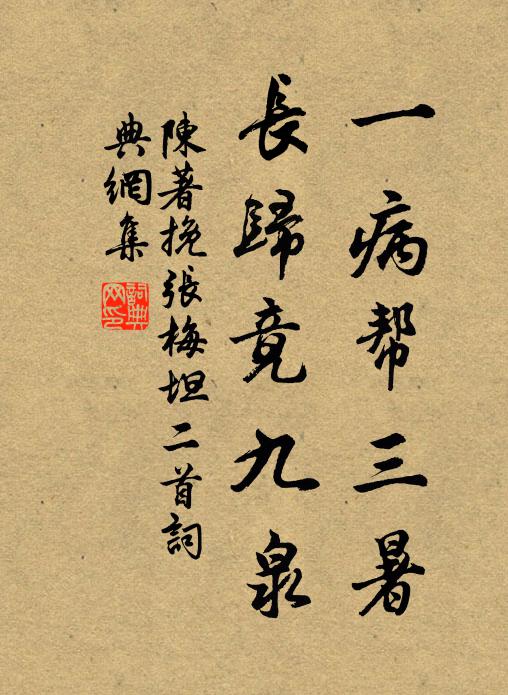 一病帮三暑
長歸竟九泉
陳著挽張梅坦二首詞
典網集
詞典网印